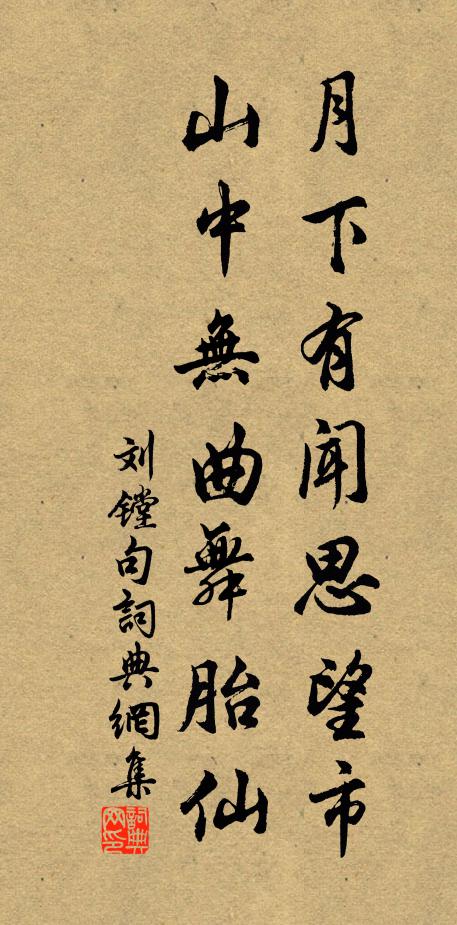 月下有闻思望市
山中無曲舞胎仙
刘镗句詞典網集
詞典網印